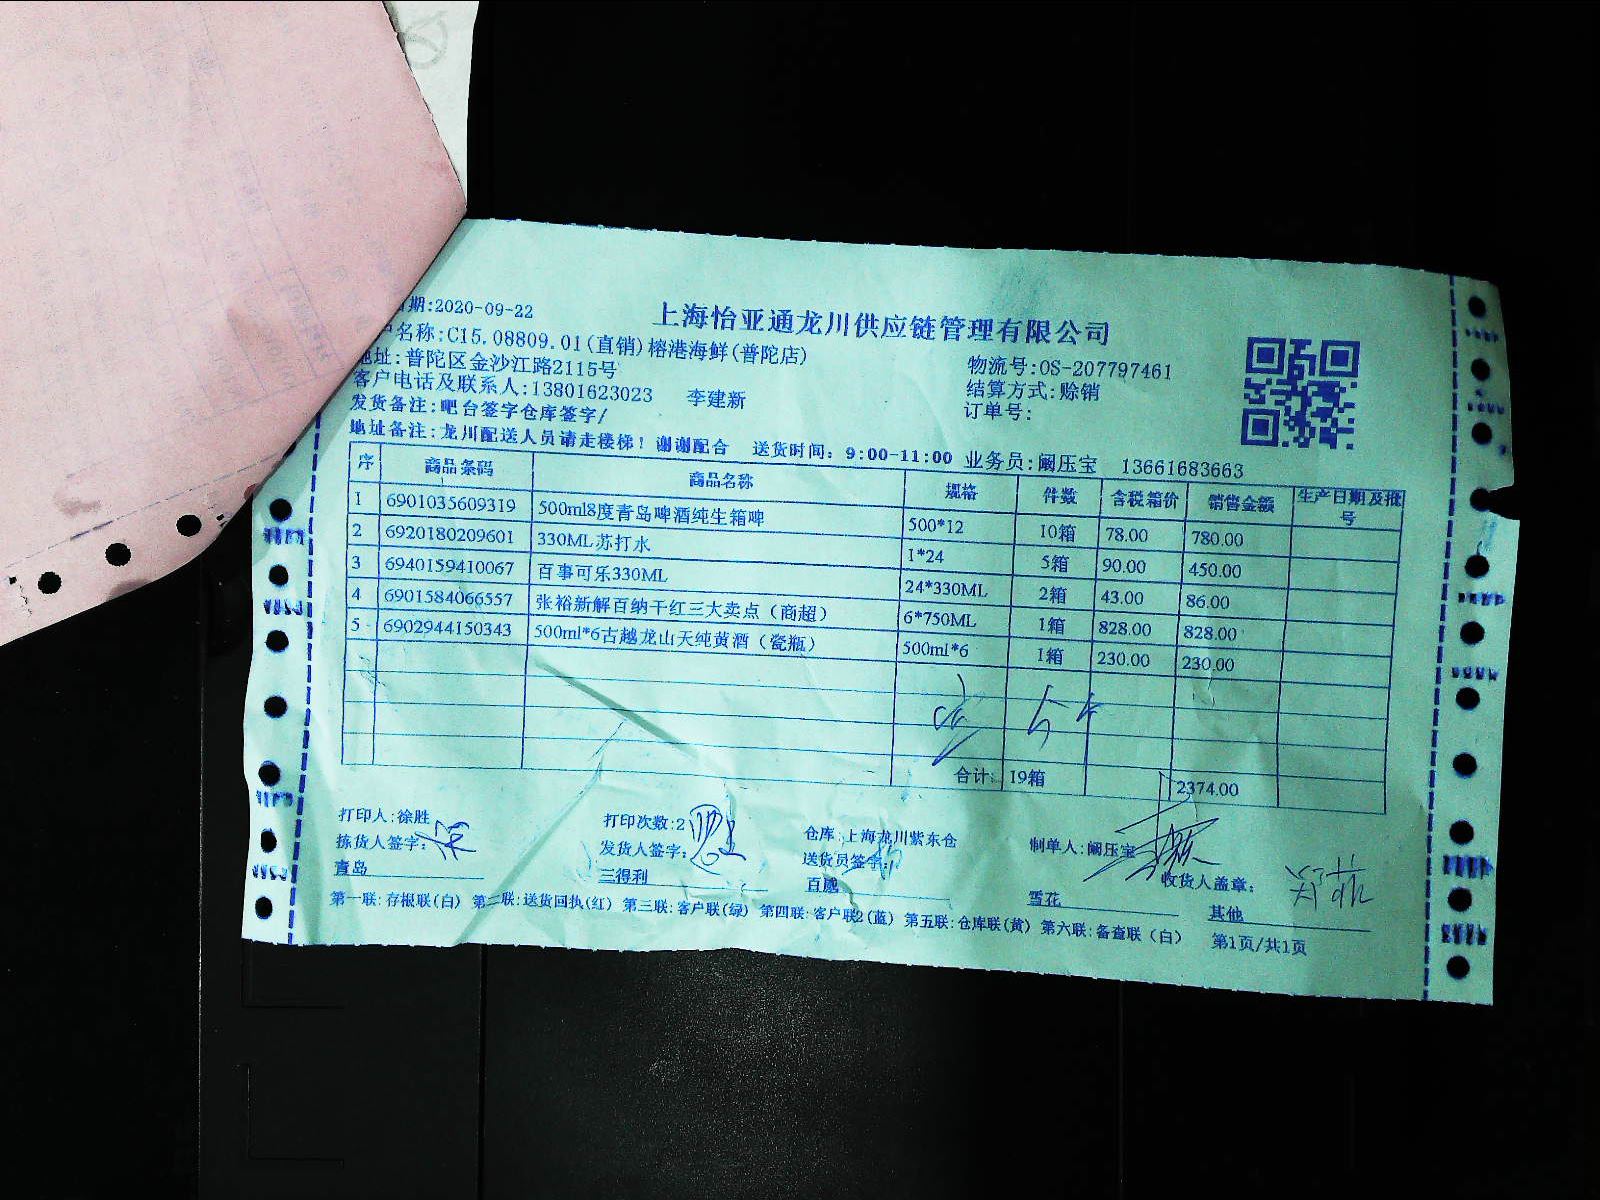 期:2020-09-22
上海怡亚通龙川供应链管理有限公司
名称:C15.08809.01(直销)榕港海鲜(普陀店)
地址:普陀区金沙江路2115号
物流号:OS-207797461
客户电话及联系人:13801623023 李建新
结算方式:赊销
发货备注:吧台签字仓库签字/
订单号:
地址备注:龙川配送人员请走楼梯！谢谢配合 送货时间：9:00-11:00 业务员:阚压宝 13661683663
序 商品条码 商品名称 规格 件数 含税箱价 销售金额 生产日期及批号
1 6901035609319 500ml8度青岛啤酒纯生箱啤 500*12 10箱 78.00 780.00
2 6920180209601 330ML苏打水 1*24 5箱 90.00 450.00
3 6940159410067 百事可乐330ML 24*330ML 2箱 43.00 86.00
4 6901584066557 张裕新解百纳干红三大卖点（商超） 6*750ML 1箱 828.00 828.00
5 6902944150343 500ml*6古越龙山天纯黄酒（瓷瓶） 500ml*6 1箱 230.00 230.00
合计: 19箱 2374.00
打印人:徐胜 打印次数:2 仓库:上海龙川紫东仓 制单人:阚压宝
拣货人签字: 发货人签字: 送货员签字: 收货人盖章:
青岛 三得利 百威 雪花 其他
第一联:存根联(白) 第二联:送货回执(红) 第三联:客户联(绿) 第四联:客户联2(蓝) 第五联:仓库联(黄) 第六联:备查联（白） 第1页/共1页